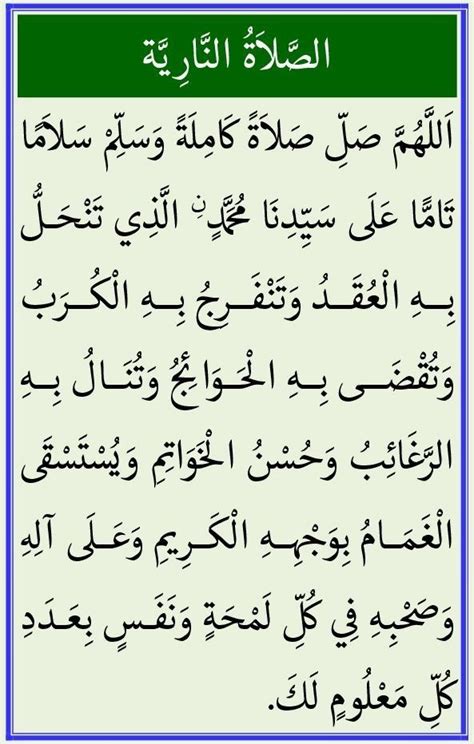 الصَّلَاةُ النَّارِيَّة
اَللَّهُمَّ صَلِّ صَلَاةً كَامِلَةً وَسَلِّمْ سَلَامًا
تَامًّا عَلَى سَيِّدِنَا مُحَمَّدٍنِ الَّذِي تَنْحَلُّ
بِهِ الْعُقَدُ وَتَنْفَرِجُ بِهِ الْكُرَبُ
وَتُقْضَى بِهِ الْحَوَائِجُ وَتُنَالُ بِهِ
الرَّغَائِبُ وَحُسْنُ الْخَوَاتِمِ وَيُسْتَسْقَى
الْغَمَامُ بِوَجْهِهِ الْكَرِيمِ وَعَلَى آلِهِ
وَصَحْبِهِ فِي كُلِّ لَمْحَةٍ وَنَفَسٍ بِعَدَدِ
كُلِّ مَعْلُومٍ لَكَ.